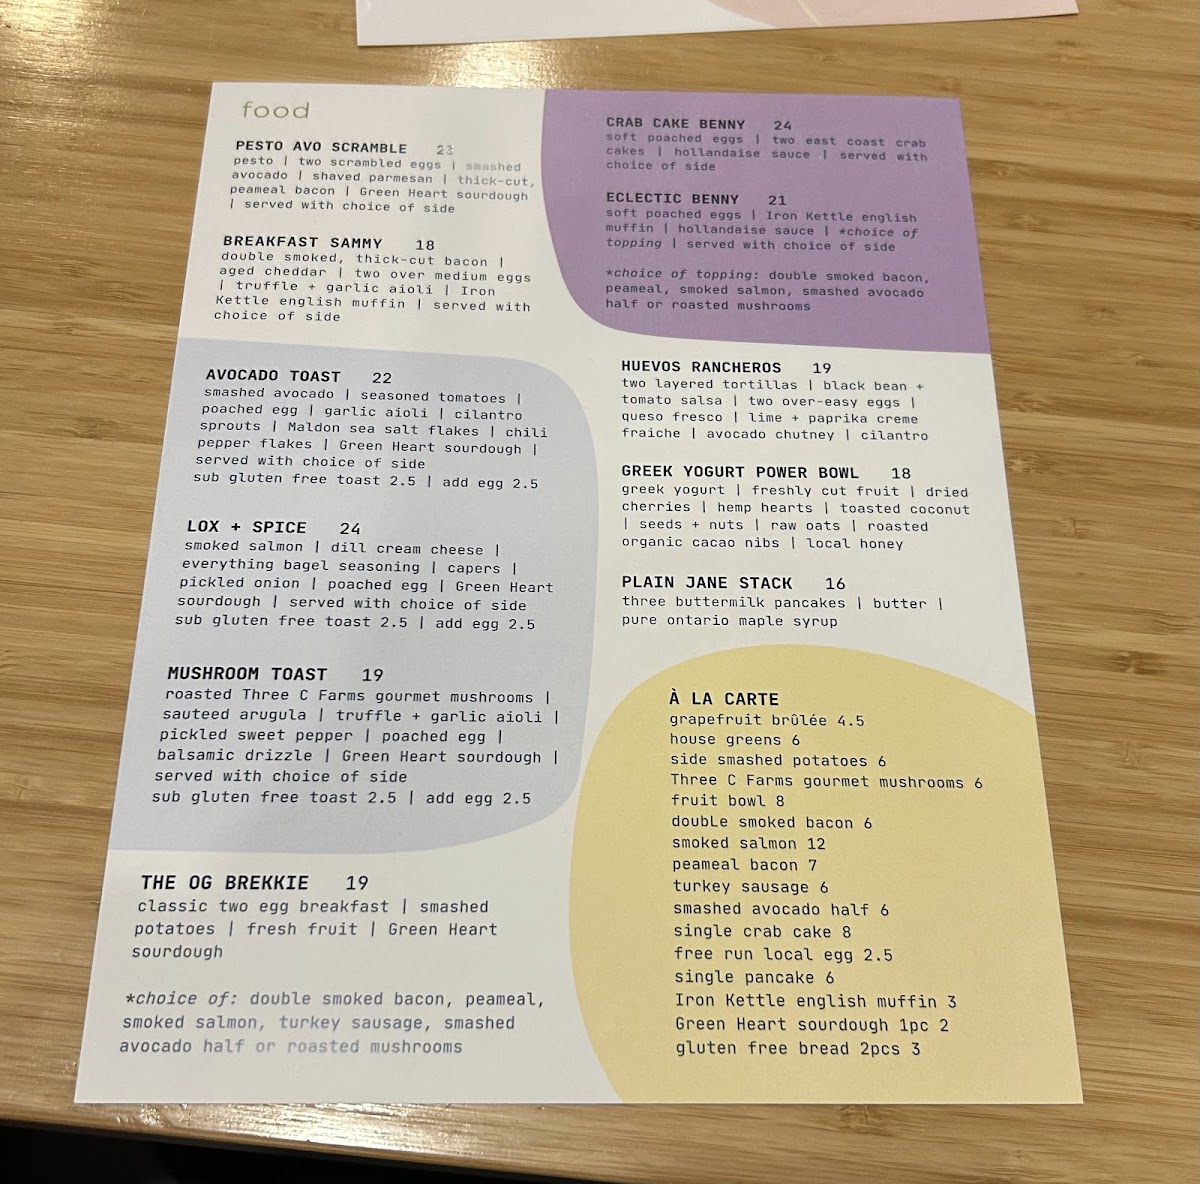 food
PESTO AVO SCRAMBLE 23
pesto | two scrambled eggs | smashed
avocado | shaved parmesan | thick-cut,
peameal bacon | Green Heart sourdough
| served with choice of side
BREAKFAST SAMMY 18
double smoked, thick-cut bacon |
aged cheddar | two over medium eggs
| truffle + garlic aioli | Iron
Kettle english muffin | served with
choice of side
AVOCADO TOAST 22
smashed avocado | seasoned tomatoes |
poached egg | garlic aioli | cilantro
sprouts | Maldon sea salt flakes | chili
pepper flakes | Green Heart sourdough |
served with choice of side
sub gluten free toast 2.5 | add egg 2.5
LOX + SPICE 24
smoked salmon | dill cream cheese |
everything bagel seasoning | capers |
pickled onion | poached egg | Green Heart
sourdough | served with choice of side
sub gluten free toast 2.5 | add egg 2.5
MUSHROOM TOAST 19
roasted Three C Farms gourmet mushrooms |
sauteed arugula | truffle + garlic aioli |
pickled sweet pepper | poached egg |
balsamic drizzle | Green Heart sourdough |
served with choice of side
sub gluten free toast 2.5 | add egg 2.5
THE OG BREKKIE 19
classic two egg breakfast | smashed
potatoes | fresh fruit | Green Heart
sourdough
*choice of: double smoked bacon, peameal,
smoked salmon, turkey sausage, smashed
avocado half or roasted mushrooms
CRAB CAKE BENNY 24
soft poached eggs | two east coast crab
cakes | hollandaise sauce | served with
choice of side
ECLECTIC BENNY 21
soft poached eggs | Iron Kettle english
muffin | hollandaise sauce | *choice of
topping | served with choice of side
*choice of topping: double smoked bacon,
peameal, smoked salmon, smashed avocado
half or roasted mushrooms
HUEVOS RANCHEROS 19
two layered tortillas | black bean +
tomato salsa | two over-easy eggs |
queso fresco | lime + paprika creme
fraiche | avocado chutney | cilantro
GREEK YOGURT POWER BOWL 18
greek yogurt | freshly cut fruit | dried
cherries | hemp hearts | toasted coconut
| seeds + nuts | raw oats | roasted
organic cacao nibs | local honey
PLAIN JANE STACK 16
three buttermilk pancakes | butter |
pure ontario maple syrup
À LA CARTE
grapefruit brûlée 4.5
house greens 6
side smashed potatoes 6
Three C Farms gourmet mushrooms 6
fruit bowl 8
doubLe smoked bacon 6
smoked salmon 12
peameal bacon 7
turkey sausage 6
smashed avocado half 6
single crab cake 8
free run local egg 2.5
single pancake 6
Iron Kettle english muffin 3
Green Heart sourdough 1pc 2
gluten free bread 2pcs 3